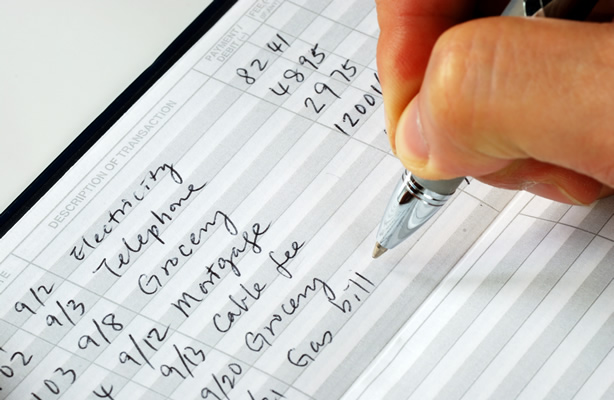 TE DESCRIPTION OF TRANSACTION PAYMENT/ DEBIT (-)
9/2 Electricity 82 41
02 9/3 Telephone 48 95
103 9/8 Grocery 29 75
4 9/12 Mortgage 1200
9/13 Cable fee
9/20 Grocery
Gas bill